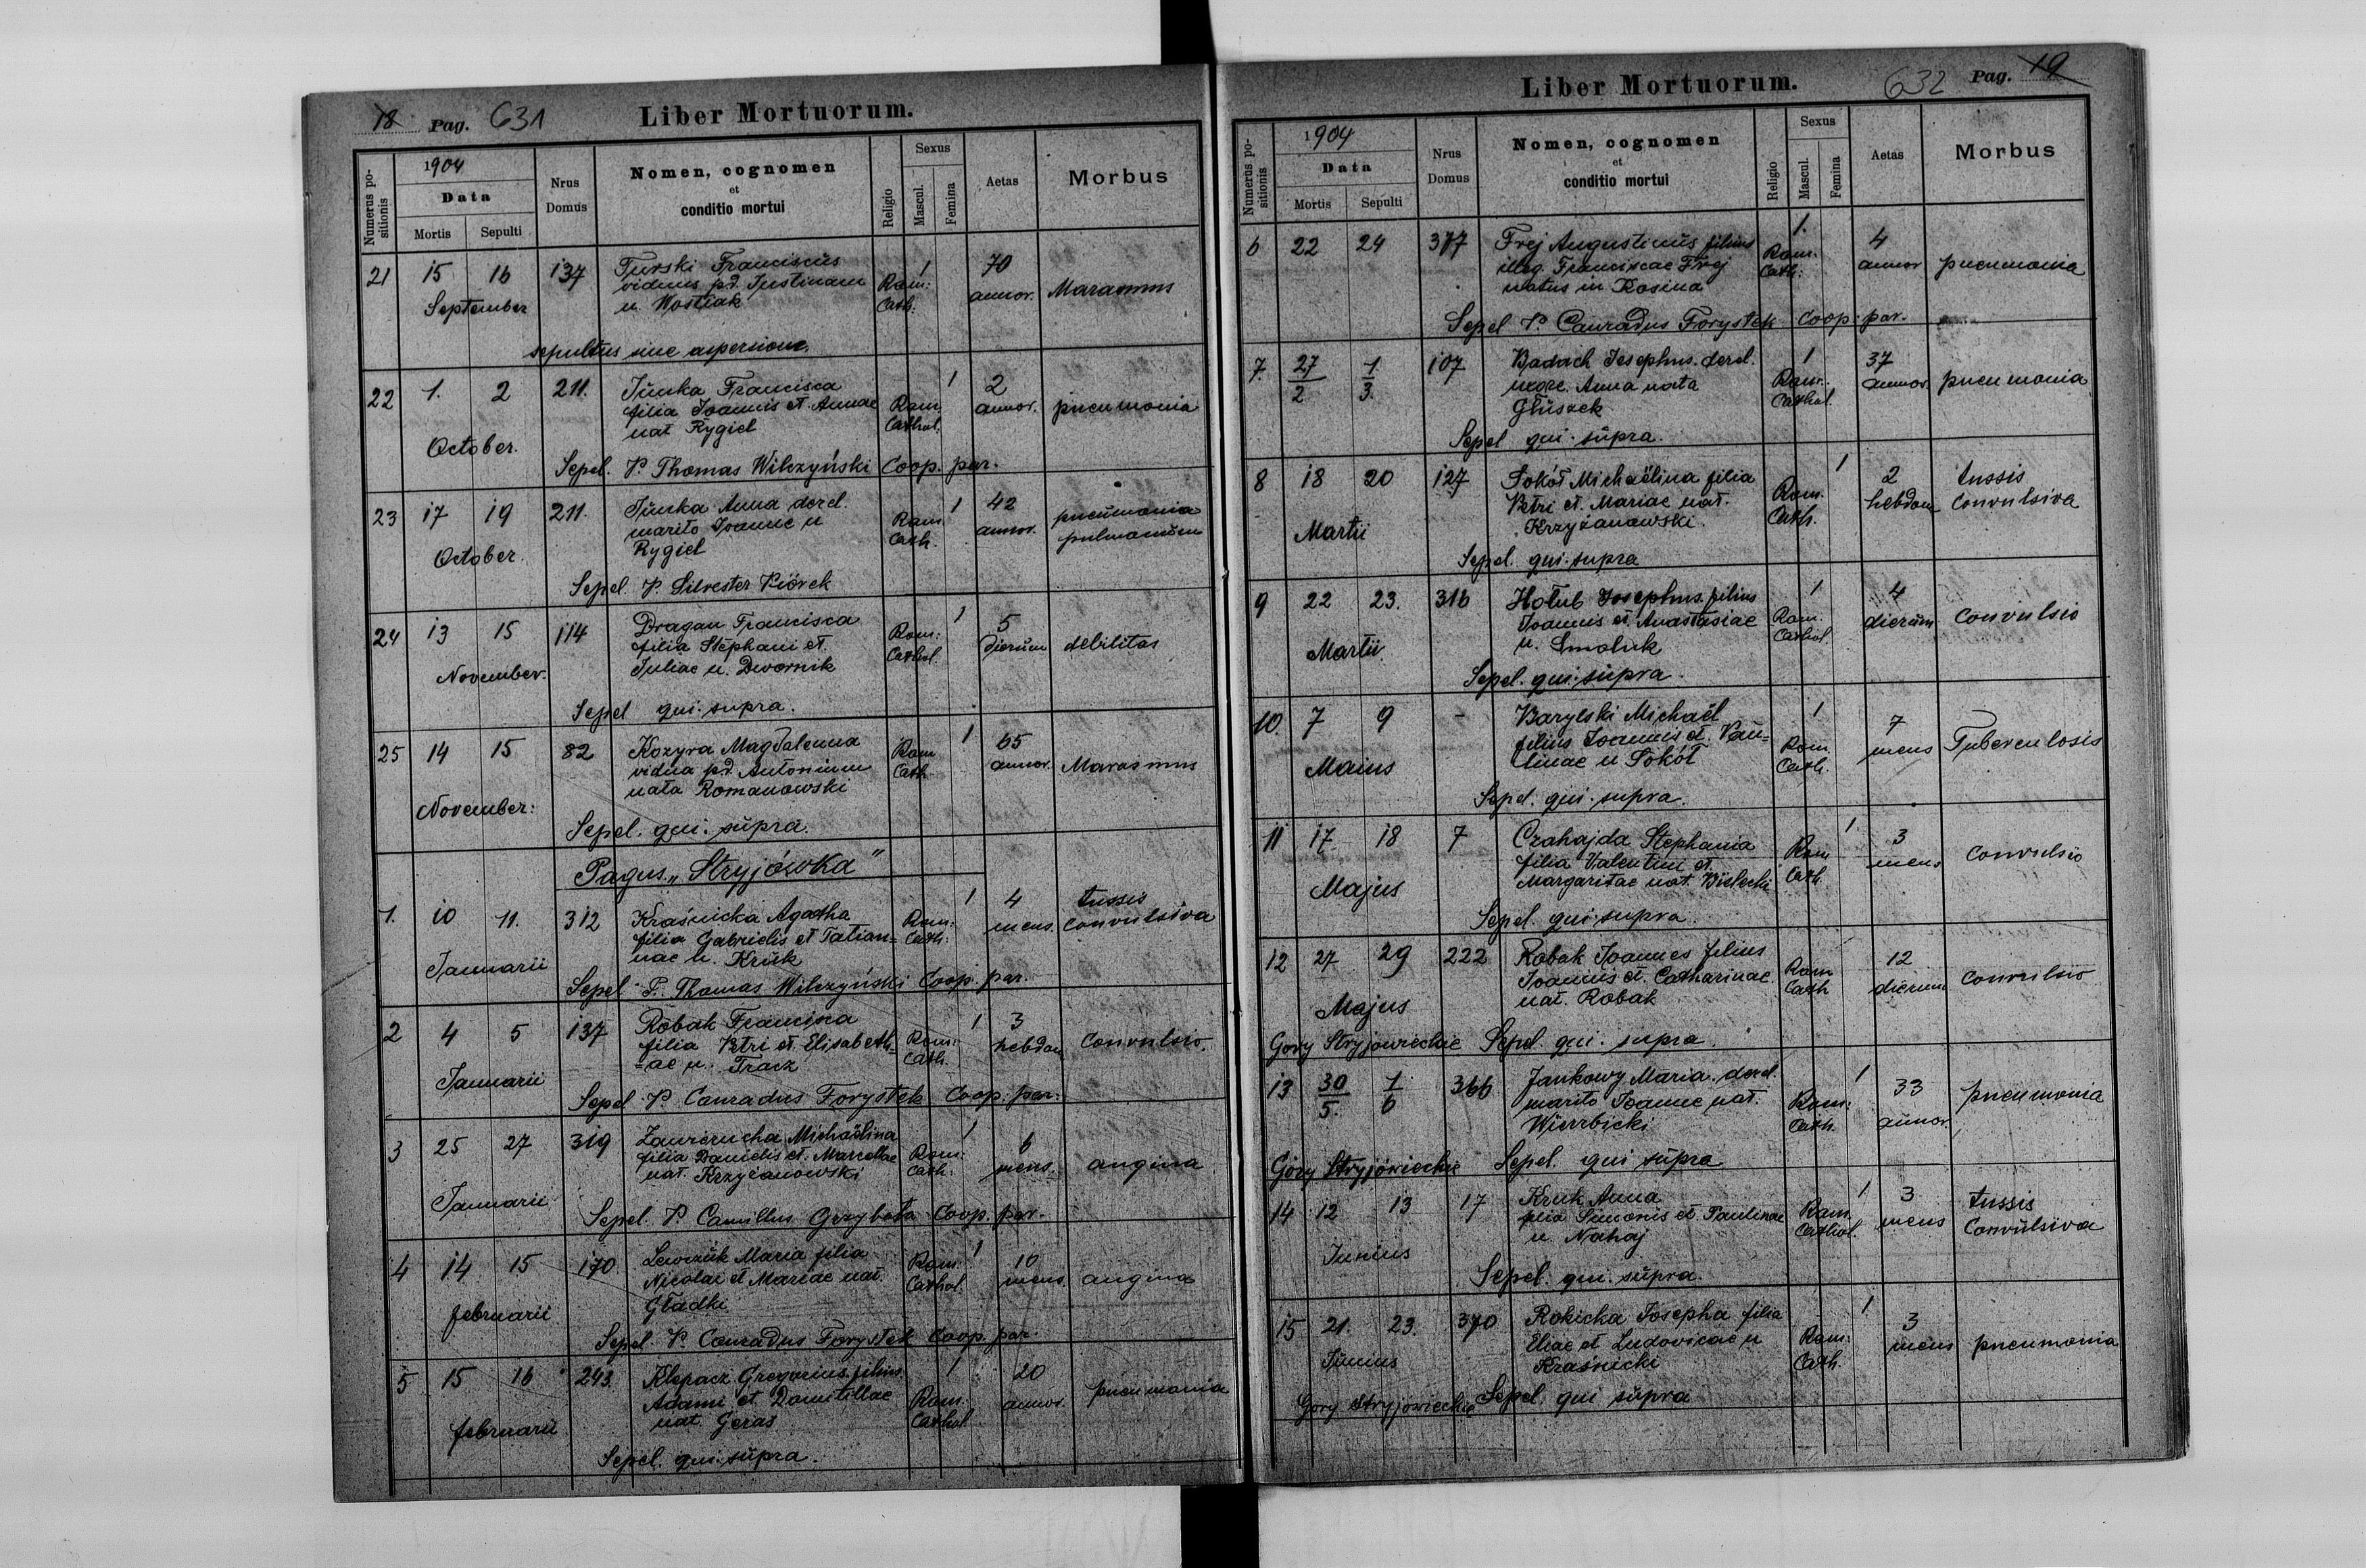 18 Pag. 631 Liber Mortuorum.
Numerus positionis
1904
Data
Mortis Sepulti
Nrus Domus
Nomen, cognomen
et
conditio mortui
Religio
Sexus
Mascul. Femina
Aetas
Morbus
21 15 16 137 Turski Franciscus 1 70
September viduus pd. Justinam Rom: annor. Marasmus
n. Wostrak Cath:
sepultus sine aspersione.
22 1. 2 211. Junka Francisca 1 2
filia Joannis et Annae Rom. annor. pneumonia
October. nat Rygiel Cathol.
Sepel. P. Thomas Wilczyński Coop. par.
23 17 19 211. Junka Anna derel. 1 42 pneumonia
October. marito Joanne n Rom annor. pulmonum
Rygiel Cath.
Sepel. P. Silvester Piórek
24 13 15 114 Dragan Francisca 1 5
November. filia Stephani et Rom: dierum debilitas
Juliae n. Dwornik Cathol.
Sepel qui supra.
25 14 15 82 Kozyra Magdalenna 1 65
vidua pd. Antonium Rom annor. Marasmus
November: nata Romanowski Cath
Sepel. qui supra.
Pagus „Stryjówka"
1. 10 11. 312 Kraśnicka Agatha 1 4 tussis
filia Gabrielis et Tatian= Rom: mens. convulsiva
Januarii nae n. Kruk Cath:
Sepel P. Thomas Wilczyński Coop. par.
2 4 5 137 Robak Francisca 1 3
filia Petri et Elisabeth= Rom: hebdom convulsio.
Januarii =ae n. Tracz Cath.
Sepel P. Conradus Forystek Coop. par.
3 25 27 319 Michaëlina 1 6
filia Danielis et Marcellae Rom: mens. angina
Januarii nat. Krzyżanowski Cath:
Sepel. P. Camillus Grzybała Coop. par.
4 14 15 170 Lewczuk Maria filia 1 10
Nicolai et Mariae nat. Rom. mens. angina
februarii Gładki Cathol
Sepel. P. Conradus Forystek Coop. par
5 15 16 243 Klepacz Gregorius filius 1 20
Adami et Domitillae Rom. annor. pneumonia
februarii nat Geras Cathol
Sepel. qui supra.
Liber Mortuorum. 632 Pag. 19
Numerus positionis
1904
Data
Mortis Sepulti
Nrus Domus
Nomen, cognomen
et
conditio mortui
Religio
Sexus
Mascul. Femina
Aetas
Morbus
6 22 24 377 Frej Augustinus filius 1. 4
illeg. Franciscae Frej Rom. annor pneumonia
natus in Kosina Cath:
Sepel P. Conradus Forystek Coop. par.
7. 27/2 1/3. 107 Badach Josephus derel. 1 37
uxore Anna nata Rom. annor. pneumonia
Głuszek Cathol.
Sepel qui supra.
8 18 20 127 Sokół Michaëlina filia 1 2 tussis
Petri et Mariae nat. Rom. hebdom convulsiva
Martii Krzyżanowski. Cath.
Sepel. qui supra
9 22 23. 316 Hołub Josephus filius 1 4
Joannis et Anastasiae Rom. dierum convulsio
Martii. n. Smoluk Cathol
Sepel. qui supra.
10. 7 9 - Barylski Michaël 1 7
filius Joannis et Pau= Rom. mens Tuberculosis
Maius linae n Sokół Cath.
Sepel. qui supra.
11 17 18 7 Czahajda Stephania 1 3
filia Valentini et Rom mens convulsio
Majus Margaritae nat. Bielecki Cath.
Sepel. qui supra
12 27 29 222 Robak Joannes filius 12
Joannis et Catharinae Rom dierum convulsio
Majus nat. Robak Cath
Gory Stryjowieckie Sepel. qui supra.
13 30/5. 1/6 366 Jankowy Maria derel. 1 33
marito Joanne nat. Rom: annor. pneumonia
Wierzbicki Cath.
Góry Stryjówieckie Sepel. qui supra
14 12 13 17 Kruk Anna 1 3 tussis
filia Simonis et Paulinae Rom. mens convulsiva
Junius n Nahaj Cathol.
Sepel. qui supra.
15 21. 23. 370 Rokicka Josepha filia 1 3
Eliae et Ludovicae n Rom: mens pneumonia
Junius Kraśnicki Cath.
Gory Stryjowieckie Sepel qui supra